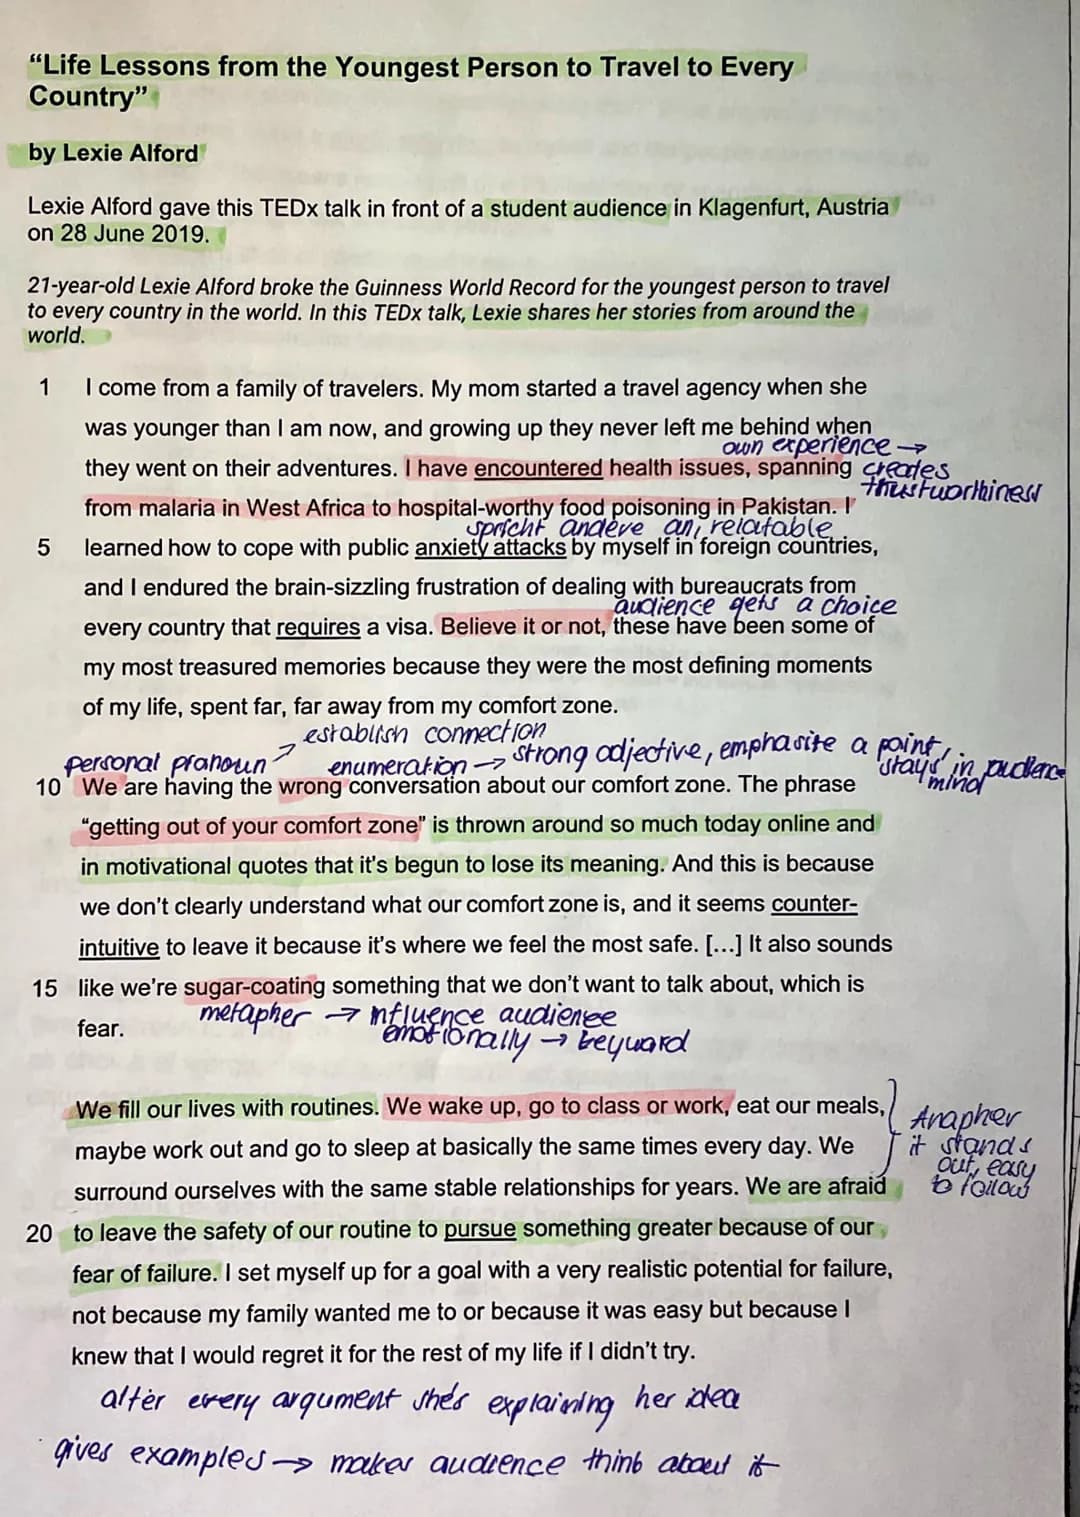 “Life Lessons from the Youngest Person to Travel to Every
Country”
by Lexie Alford
Lexie Alford gave this TEDx talk in front of a student audience in Klagenfurt, Austria
on 28 June 2019.
21-year-old Lexie Alford broke the Guinness World Record for the youngest person to travel
to every country in the world. In this TEDx talk, Lexie shares her stories from around the
world.
1 I come from a family of travelers. My mom started a travel agency when she
was younger than I am now, and growing up they never left me behind when
own experience →
they went on their adventures. I have encountered health issues, spanning creates
trustworthiness
from malaria in West Africa to hospital-worthy food poisoning in Pakistan. I
spricht andere an, relatable
5 learned how to cope with public anxiety attacks by myself in foreign countries,
and I endured the brain-sizzling frustration of dealing with bureaucrats from
audience gets a choice
every country that requires a visa. Believe it or not, these have been some of
my most treasured memories because they were the most defining moments
of my life, spent far, far away from my comfort zone.
→ establish connection
personal pronoun enumeration → strong adjective, emphasize a point,
stays in audience
mind
10 We are having the wrong conversation about our comfort zone. The phrase
“getting out of your comfort zone” is thrown around so much today online and
in motivational quotes that it's begun to lose its meaning. And this is because
we don't clearly understand what our comfort zone is, and it seems counter-
intuitive to leave it because it's where we feel the most safe. [...] It also sounds
15 like we're sugar-coating something that we don't want to talk about, which is
metapher → influence audience
fear.
emotionally → keyword
We fill our lives with routines. We wake up, go to class or work, eat our meals,
Anapher
maybe work out and go to sleep at basically the same times every day. We
it stands
out, easy
surround ourselves with the same stable relationships for years. We are afraid
to follow
20 to leave the safety of our routine to pursue something greater because of our
fear of failure. I set myself up for a goal with a very realistic potential for failure,
not because my family wanted me to or because it was easy but because I
knew that I would regret it for the rest of my life if I didn't try.
after every argument she's explaining her idea
gives examples → makes audience think about it